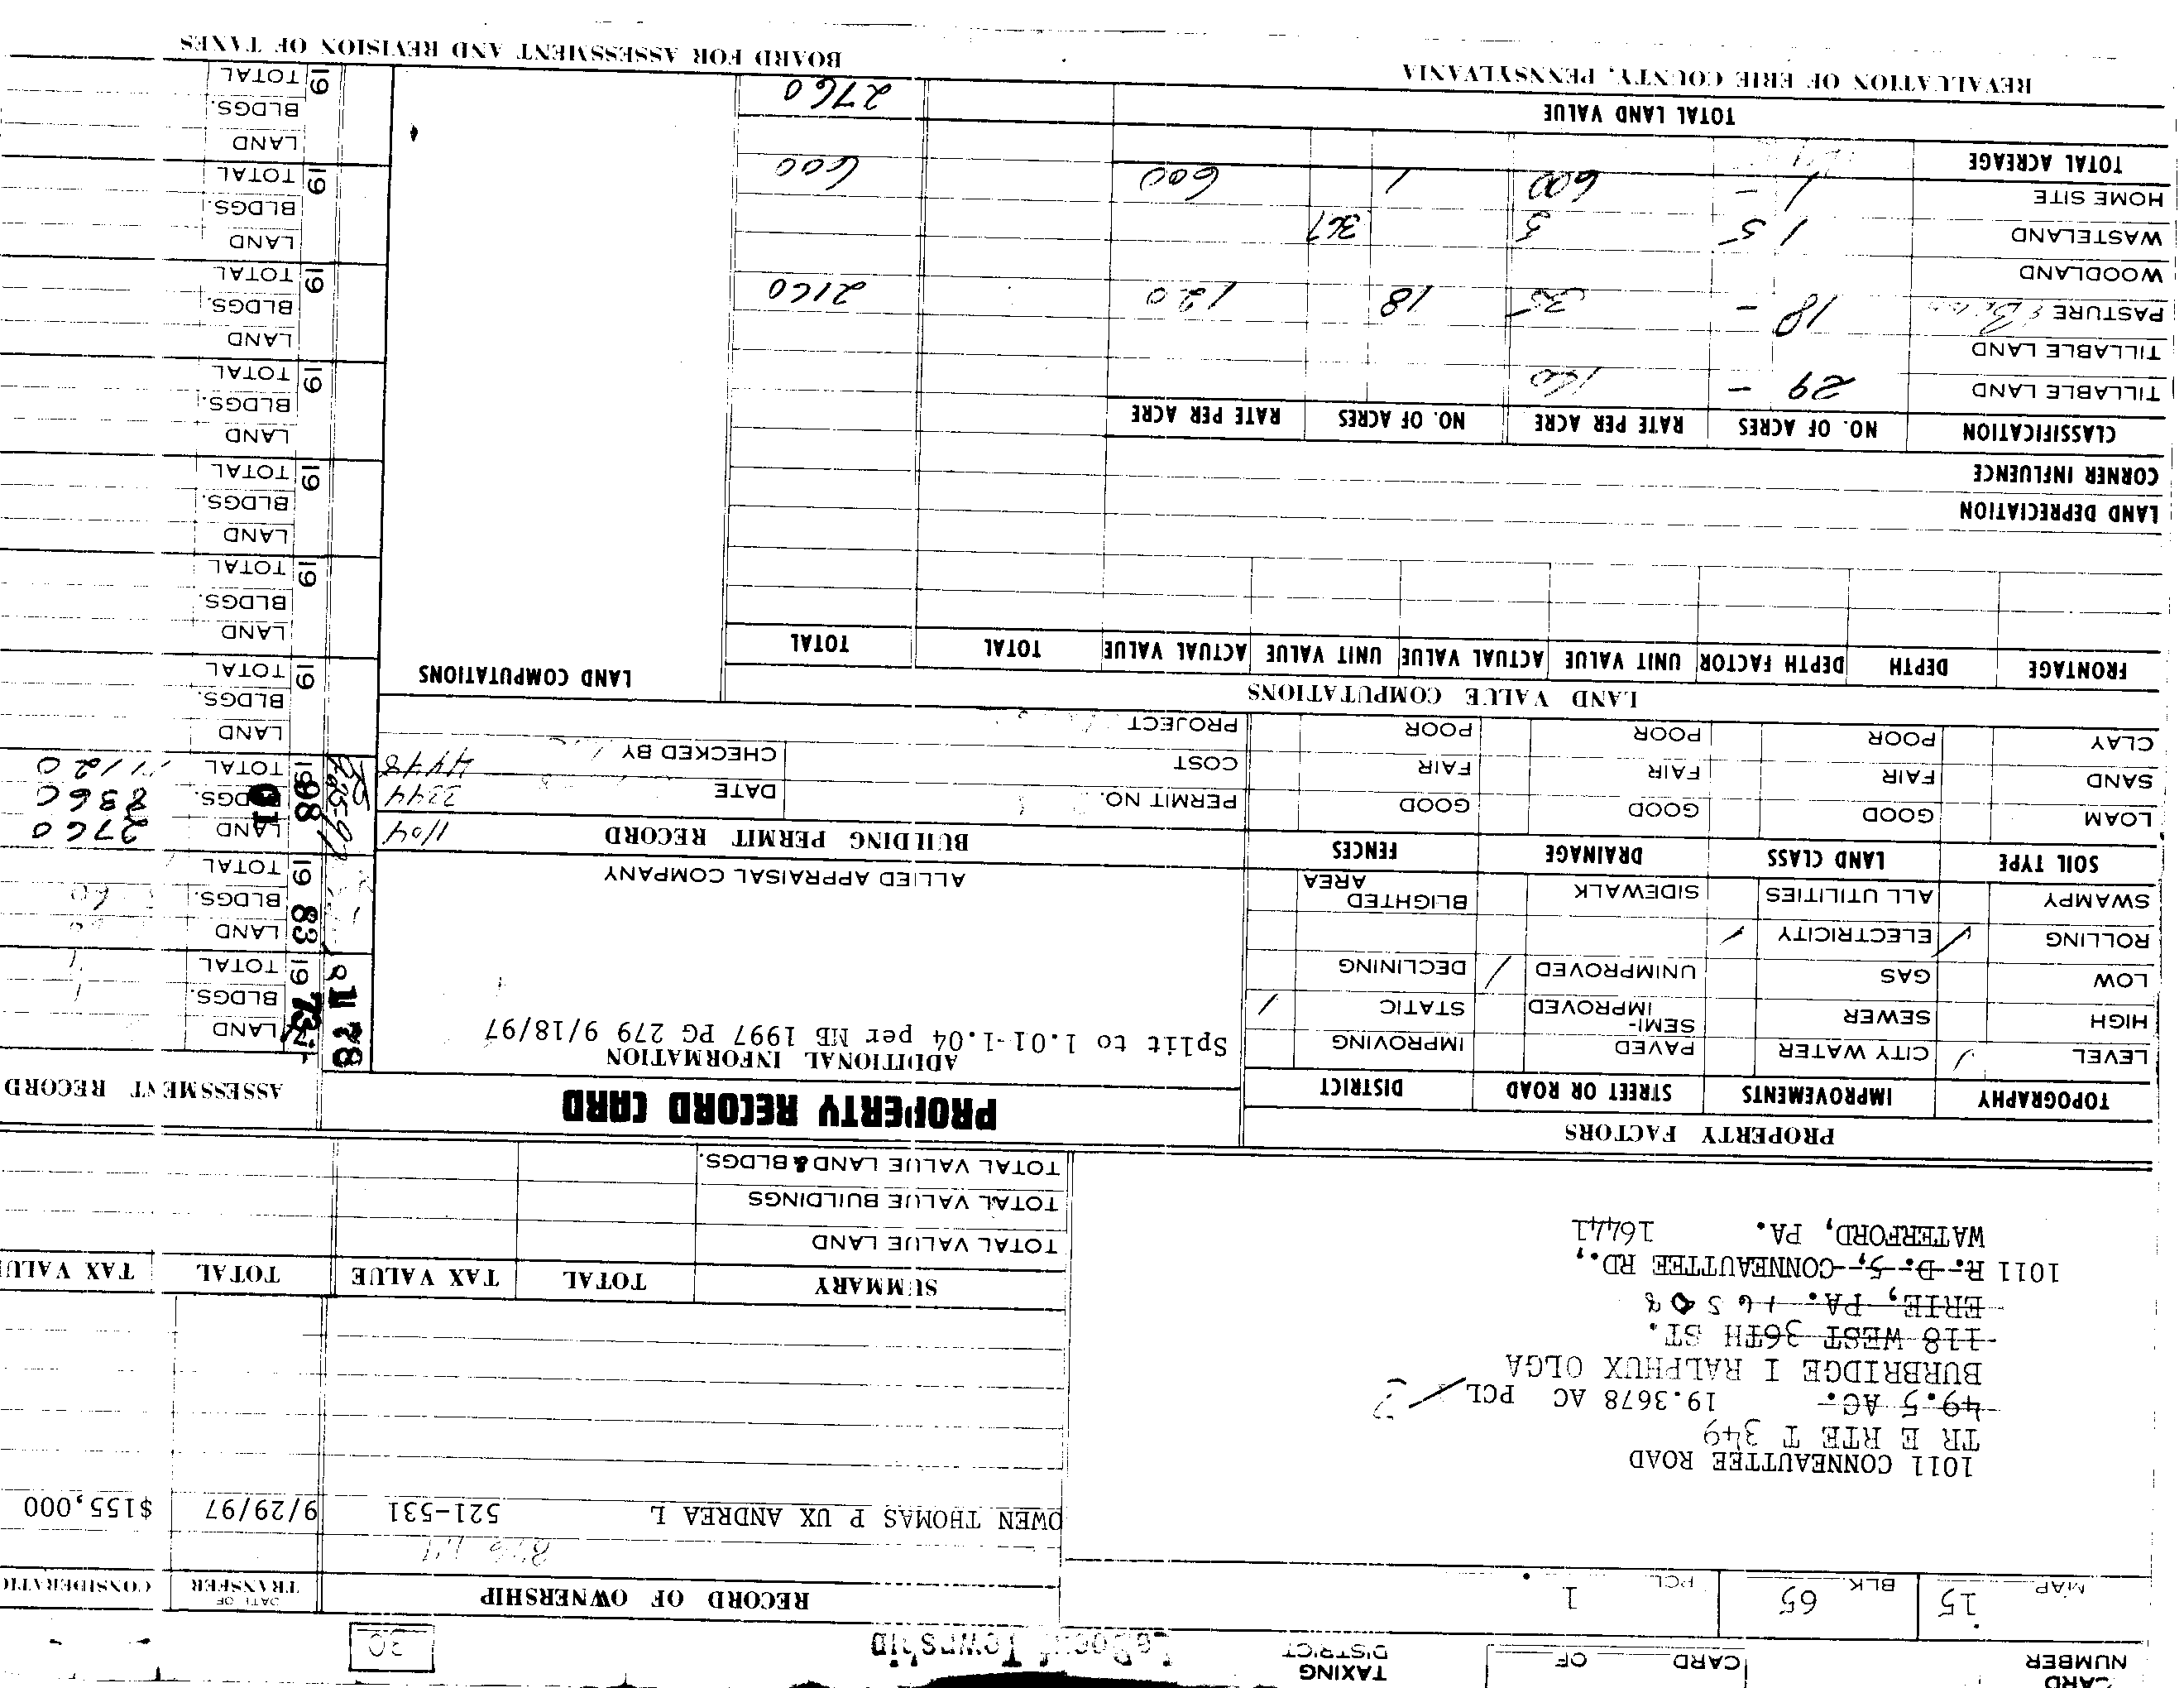 CARD NUMBER CARD OF TAXING DISTRICT LeBoeuf Township 30
MAP 15 BLK. 65 PCL. 1
RECORD OF OWNERSHIP DATE OF TRANSFER CONSIDERATIO
OWEN THOMAS P UX ANDREA L 521-531 9/29/97 $155,000
1011 CONNEAUTTEE ROAD
TR E RTE T 349
49.5 AC. 19.3678 AC PCL
BURBRIDGE I RALPHUX OLGA
118 WEST 36TH ST.
ERIE, PA. 16508
1011 R. D. 5, CONNEAUTTEE RD.,
WATERFORD, PA. 16441
SUMMARY TOTAL TAX VALUE TOTAL TAX VALUE
TOTAL VALUE LAND
TOTAL VALUE BUILDINGS
TOTAL VALUE LAND & BLDGS.
PROPERTY FACTORS
PROPERTY RECORD CARD
ASSESSMENT RECORD
TOPOGRAPHY IMPROVEMENTS STREET OR ROAD DISTRICT
LEVEL CITY WATER PAVED IMPROVING
HIGH SEWER SEMI-IMPROVED STATIC
LOW GAS UNIMPROVED DECLINING
ROLLING ELECTRICITY
SWAMPY ALL UTILITIES SIDEWALK BLIGHTED AREA
SOIL TYPE LAND CLASS DRAINAGE FENCES
LOAM GOOD GOOD GOOD
SAND FAIR FAIR FAIR
CLAY POOR POOR POOR
ADDITIONAL INFORMATION
Split to 1.01-1.04 per NB 1997 PG 279 9/18/97
ALLIED APPRAISAL COMPANY
BUILDING PERMIT RECORD 1104
PERMIT NO. DATE 3344
COST CHECKED BY 4448
PROJECT
78 1973 LAND
BLDGS.
TOTAL
1983 LAND
BLDGS.
TOTAL
1998 01 LAND 2760
BLDGS. 8360
TOTAL 11120
LAND VALUE COMPUTATIONS
LAND COMPUTATIONS
FRONTAGE DEPTH DEPTH FACTOR UNIT VALUE ACTUAL VALUE UNIT VALUE ACTUAL VALUE TOTAL TOTAL
LAND DEPRECIATION
CORNER INFLUENCE
CLASSIFICATION NO. OF ACRES RATE PER ACRE NO. OF ACRES RATE PER ACRE
TILLABLE LAND 29 - 160
TILLABLE LAND
PASTURE 18 - 35 18 120 2160
WOODLAND
WASTELAND 1 5 5 367
HOME SITE 1 - 600 1 600 600
TOTAL ACREAGE
TOTAL LAND VALUE 2760
19 LAND
BLDGS.
TOTAL
19 LAND
BLDGS.
TOTAL
19 LAND
BLDGS.
TOTAL
19 LAND
BLDGS.
TOTAL
19 LAND
BLDGS.
TOTAL
19 LAND
BLDGS.
TOTAL
19 LAND
BLDGS.
TOTAL
REVALUATION OF ERIE COUNTY, PENNSYLVANIA
BOARD FOR ASSESSMENT AND REVISION OF TAXES